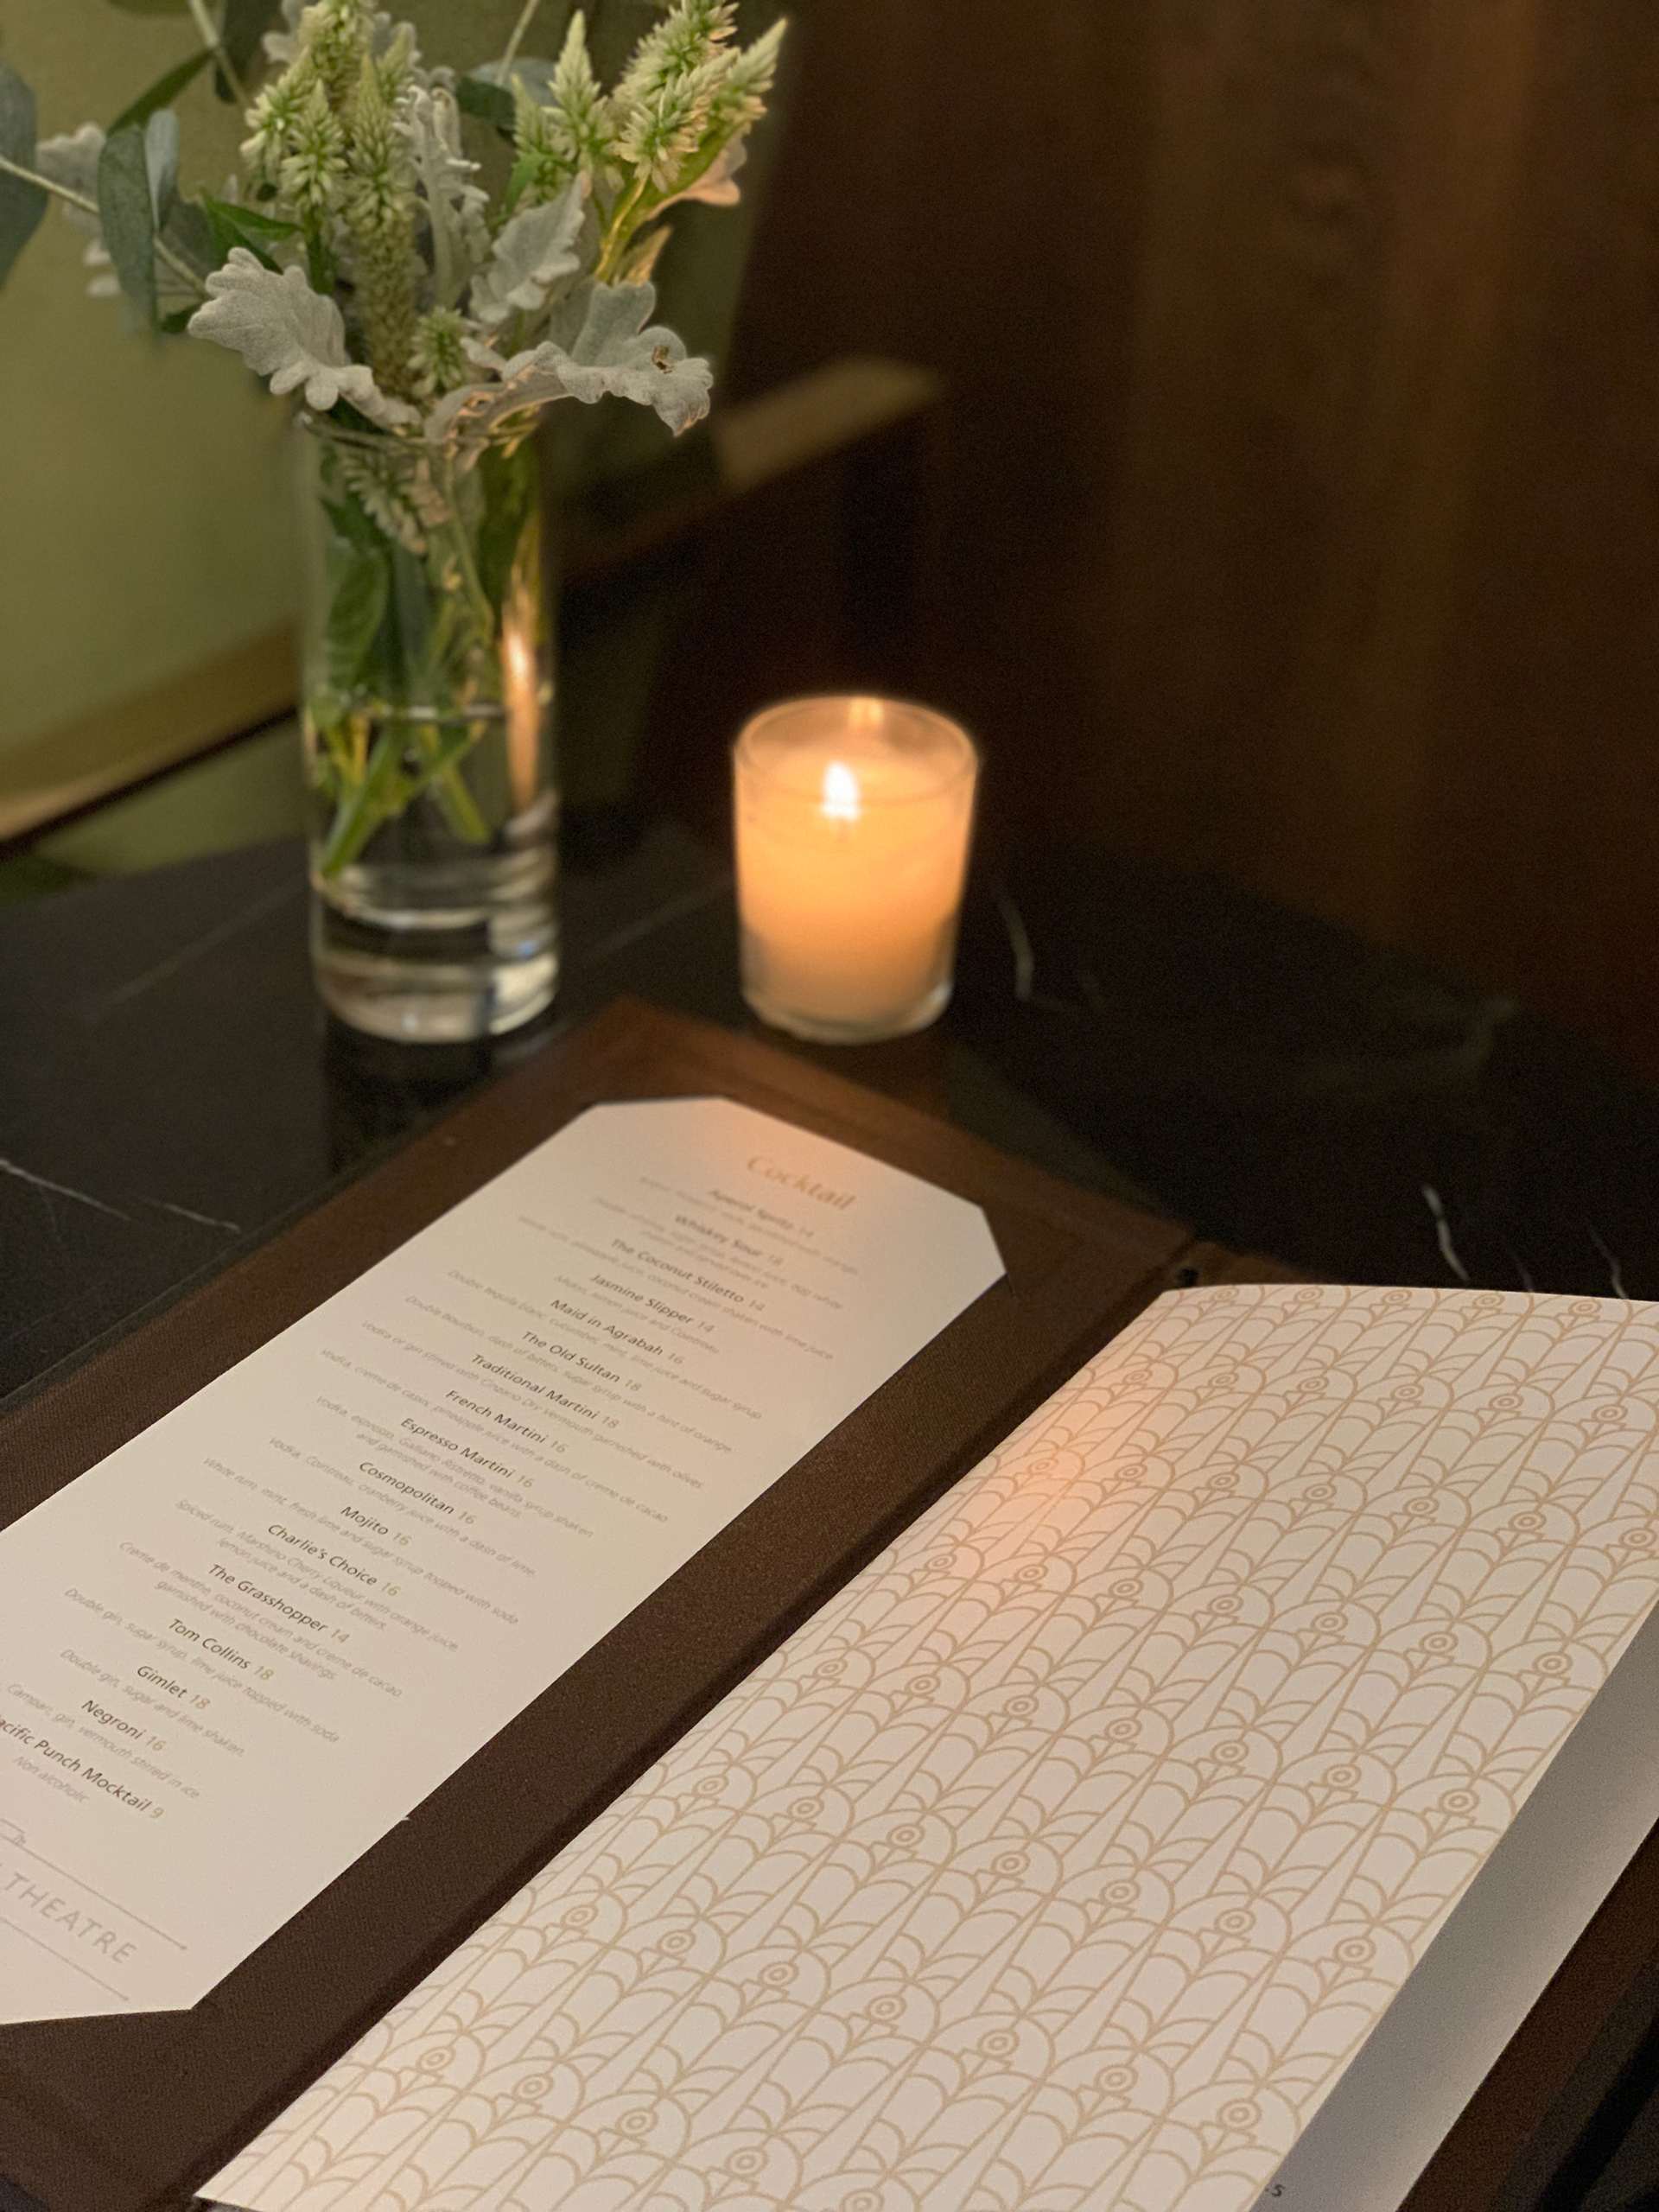 Cocktail
Aperol Spritz 14
Whiskey Sour 18
The Coconut Stiletto 14
white rum, pineapple juice, coconut cream shaken with lime juice
Jasmine Slipper 14
Midori, lemon juice and Cointreau
Maid in Agrabah 16
Double tequila blanc, cucumber, mint, lime juice and sugar syrup
The Old Sultan 18
Double bourbon, dash of bitters, sugar syrup with a hint of orange
Traditional Martini 18
Vodka or gin stirred with Cinzano Dry Vermouth garnished with olives
French Martini 16
Vodka, creme de cassis, pineapple juice with a dash of creme de cacao
Espresso Martini 16
Vodka, espresso, Galliano Ristretto, vanilla syrup shaken
and garnished with coffee beans
Cosmopolitan 16
Vodka, Cointreau, cranberry juice with a dash of lime
Mojito 16
White rum, mint, fresh lime and sugar syrup topped with soda
Charlie's Choice 16
Spiced rum, Marshino Cherry Liqueur with orange juice,
lemon juice and a dash of bitters
The Grasshopper 14
Creme de menthe, coconut cream and creme de cacao,
garnished with chocolate shavings
Tom Collins 18
Double gin, sugar syrup, lime juice topped with soda
Gimlet 18
Double gin, sugar and lime shaken
Negroni 16
Campari, gin, vermouth stirred in ice
acific Punch Mocktail 9
Non alcoholic
THEATRE